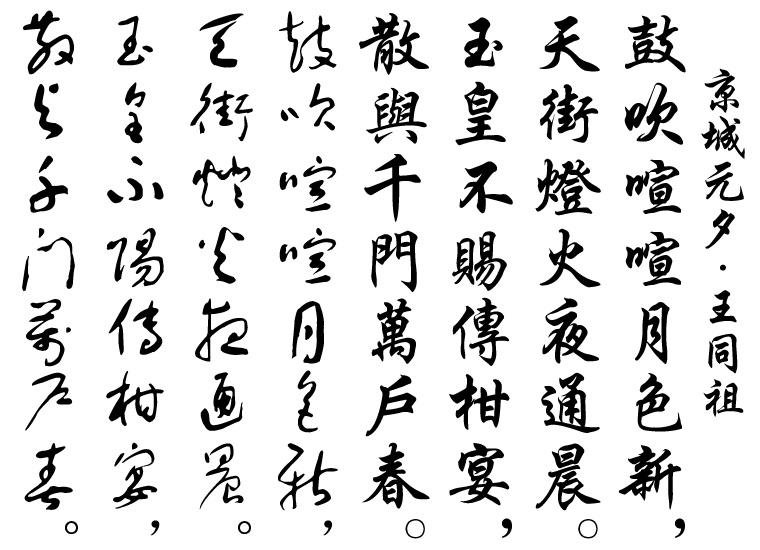 京城元夕·王同祖
鼓吹喧喧月色新，
天街燈火夜通晨。
玉皇不賜傳柑宴，
散與千門萬戶春。
鼓吹喧喧月色新，
天街燈火夜通晨。
玉皇不賜傳柑宴，
散與千門萬戶春。